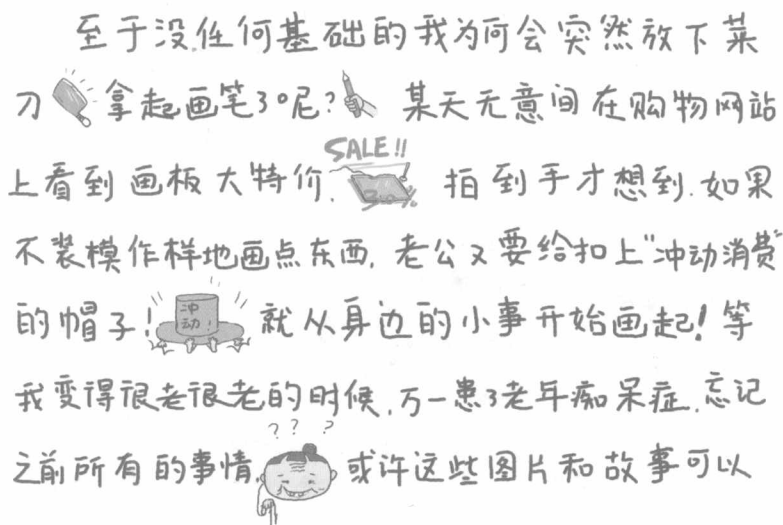 至于没任何基础的我为何会突然放下菜
刀拿起画笔了呢? 某天无意间在购物网站
上看到画板大特价. SALE!! 30% 拍到手才想到.如果
不装模作样地画点东西,老公又要给扣上"冲动消费"
的帽子! 冲动! 就从身边的小事开始画起!等
我变得很老很老的时候,万一患了老年痴呆症,忘记
之前所有的事情, ? ? ? 或许这些图片和故事可以